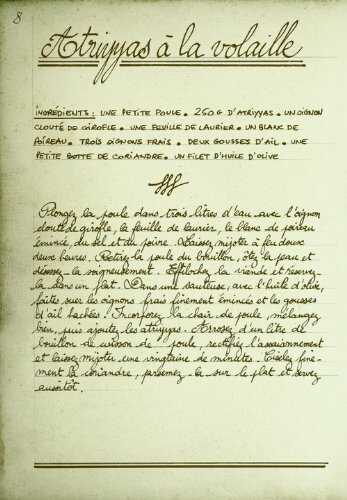 8
Atriyyas à la volaille
INGRÉDIENTS : UNE PETITE POULE • 250 G D'ATRIYYAS • UN OIGNON
CLOUTÉ DE GIROFLE • UNE FEUILLE DE LAURIER • UN BLANC DE
POIREAU • TROIS OIGNONS FRAIS • DEUX GOUSSES D'AIL • UNE
PETITE BOTTE DE CORIANDRE • UN FILET D'HUILE D'OLIVE
Plongez la poule dans trois litres d'eau avec l'oignon
clouté de girofle, la feuille de laurier, le blanc de poireau
émincé, du sel et du poivre. Laissez mijoter à feu doux
deux heures. Retirez la poule du bouillon, ôtez la peau et
désossez-la soigneusement. Effilochez la viande et réservez-
la dans un plat. Dans une sauteuse, avec l'huile d'olive,
faites suer les oignons frais finement émincés et les gousses
d'ail hachées. Incorporez la chair de poule, mélangez
bien, puis ajoutez les atriyyas. Arrosez d'un litre de
bouillon de cuisson de poule, rectifiez l'assaisonnement
et laissez mijoter une vingtaine de minutes. Ciselez fine-
ment la coriandre, parsemez-la sur le plat et servez
aussitôt.